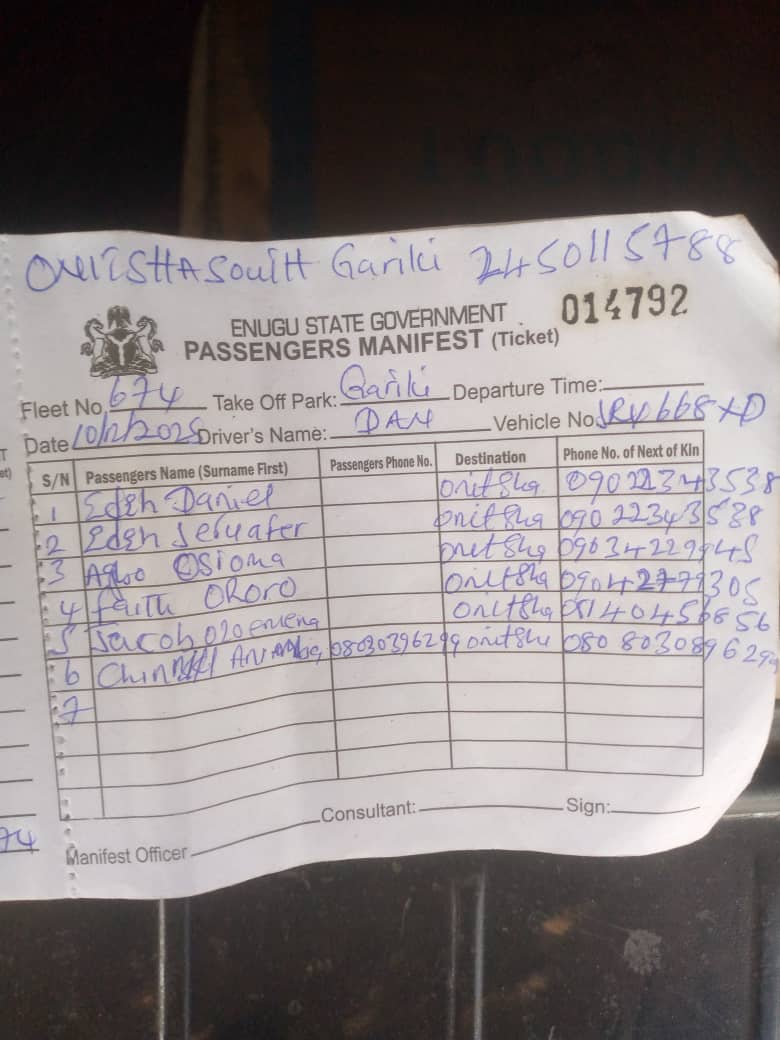 ONITSHA SOUTH Gariki 2450115788
ENUGU STATE GOVERNMENT 014792
PASSENGERS MANIFEST (Ticket)
Fleet No. 674 Take Off Park: Gariki Departure Time:
Date 10/12/2025 Driver's Name: DAN Vehicle No. 668XD
S/N Passengers Name (Surname First) Passengers Phone No. Destination Phone No. of Next of Kin
1 Edeh Daniel Onitsha 09022343538
2 Edeh Onitsha 09022343538
3 Agbo Osioma Onitsha 09034229945
4 Faith ORORO Onitsha
5 Jacob Onitsha 08140456856
6 08030396299 Onitsha
7
Consultant: Sign:
74 Manifest Officer